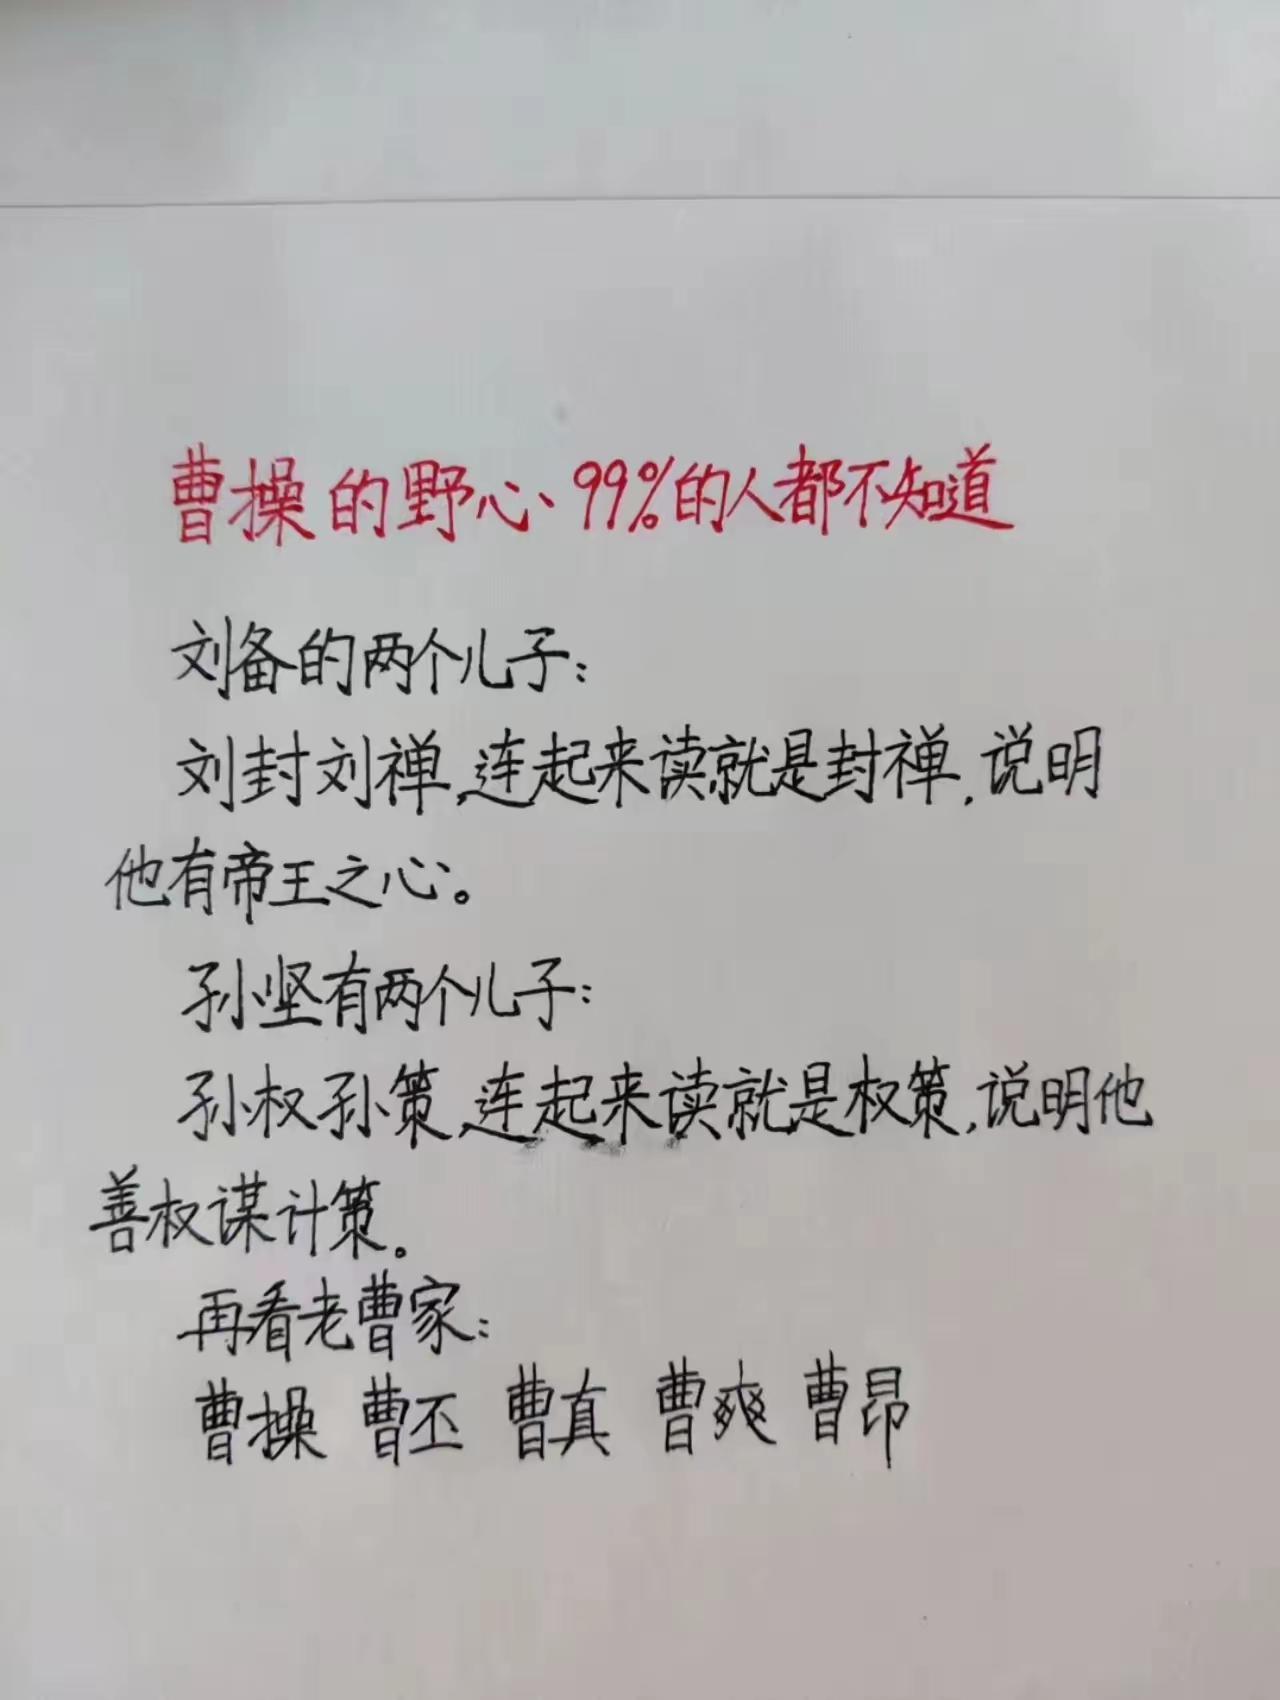 曹操的野心、99%的人都不知道
刘备的两个儿子：
刘封刘禅，连起来读就是封禅，说明
他有帝王之心。
孙坚有两个儿子：
孙权孙策，连起来读就是权策，说明他
善权谋计策。
再看老曹家：
曹操 曹丕 曹真 曹爽 曹昂